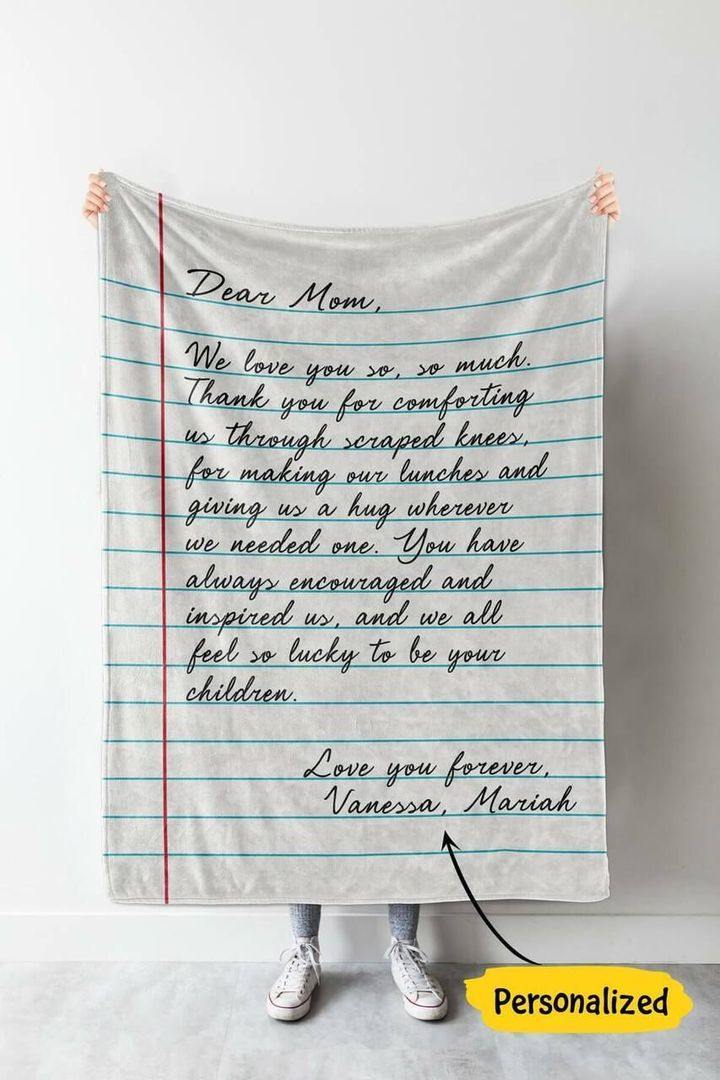 Dear Mom,
We love you so, so much.
Thank you for comforting
us through scraped knees,
for making our lunches and
giving us a hug wherever
we needed one. You have
always encouraged and
inspired us, and we all
feel so lucky to be your
children.
Love you forever,
Vanessa, Mariah
Personalized